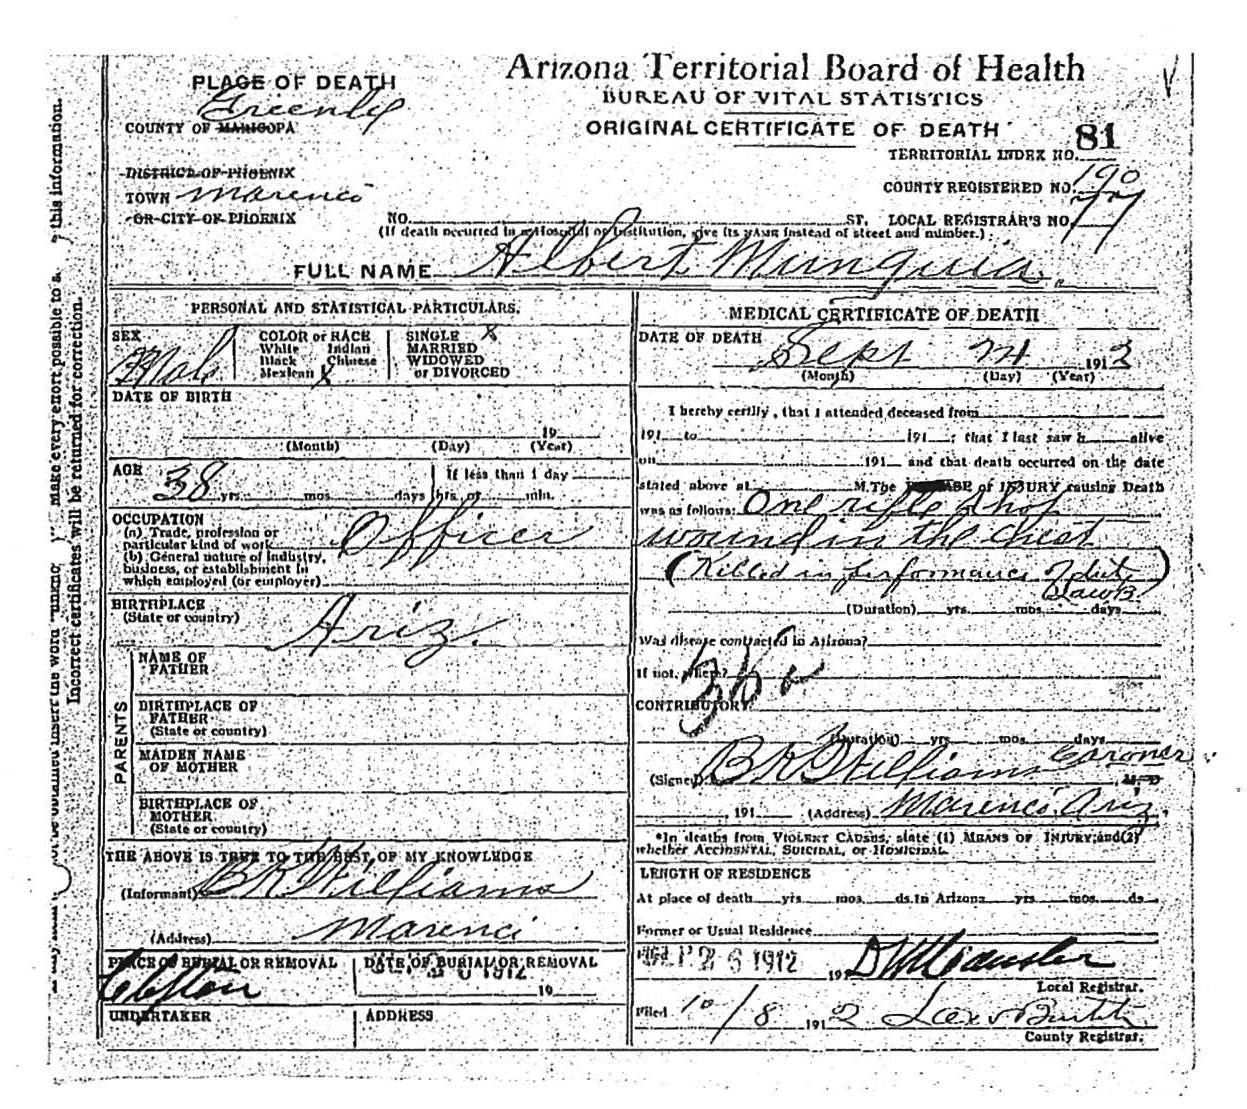 Arizona Territorial Board of Health
BUREAU OF VITAL STATISTICS
ORIGINAL CERTIFICATE OF DEATH
81
TERRITORIAL INDEX NO.
COUNTY REGISTERED NO. 190
LOCAL REGISTRAR'S NO. 77
PLACE OF DEATH
Greenle
COUNTY OF MARICOPA
DISTRICT OF PHOENIX
TOWN Marenci
OR CITY OF PHOENIX
NO. ST.
(If death occurred in a Hospital or Institution, give its NAME instead of street and number.)
FULL NAME Albert Munguia
PERSONAL AND STATISTICAL PARTICULARS.
SEX
Male
COLOR or RACE
White Indian
Black Chinese
Mexican X
SINGLE X
MARRIED
WIDOWED
or DIVORCED
DATE OF BIRTH
19
(Month) (Day) (Year)
AGE
38 yrs. mos. days
If less than 1 day
hrs. or min.
OCCUPATION
(a) Trade, profession or
particular kind of work Officer
(b) General nature of industry,
business, or establishment in
which employed (or employer)
BIRTHPLACE
(State or country) Ariz.
PARENTS
NAME OF
FATHER
BIRTHPLACE OF
FATHER
(State or country)
MAIDEN NAME
OF MOTHER
BIRTHPLACE OF
MOTHER
(State or country)
THE ABOVE IS TRUE TO THE BEST OF MY KNOWLEDGE
(Informant) BK Williams
(Address) Marenci
PLACE OF BURIAL OR REMOVAL
Clifton
DATE OF BURIAL OR REMOVAL
1912
19
UNDERTAKER
ADDRESS
MEDICAL CERTIFICATE OF DEATH
DATE OF DEATH
Sept 24 1912
(Month) (Day) (Year)
I hereby certify, that I attended deceased from
191 to 191 ; that I last saw h alive
on 191 and that death occurred on the date
stated above at M. The of INJURY causing Death
was as follows: One rifle shot
wound in the chest
(Killed in performance of duty)
(Duration) yrs. mos. days
Was disease contracted in Arizona?
If not, where?
CONTRIBUTORY
(Duration) yrs. mos. days
(Signed) BK Williams Coroner M. D
191 (Address) Marenci Ariz.
*In deaths from VIOLENT CAUSES, state (1) MEANS OF INJURY; and (2)
whether ACCIDENTAL, SUICIDAL, OR HOMICIDAL.
LENGTH OF RESIDENCE
At place of death yrs mos. ds. In Arizona yrs mos. ds
Former or Usual Residence
26 1912
191
Local Registrar.
Filed 10/8 1912
County Registrar.
make every effort possible to
this information.
Incorrect certificates will be returned for correction.